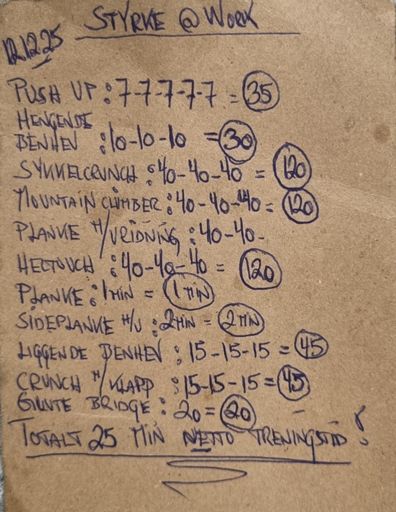 STYRKE @ WORK
12.12.25
PUSH UP : 7-7-7-7-7 = 35
HENGENDE
BENHEV : 10-10-10 = 30
SYKKELCRUNCH : 40-40-40 = 120
MOUNTAIN CLIMBER : 40-40-40 = 120
PLANKE M/VRIDNING : 40-40-
HELTOUCH : 40-40-40 = 120
PLANKE : 1 MIN = 1 MIN
SIDEPLANKE H/V : 2 MIN = 2 MIN
LIGGENDE BENHEV : 15-15-15 = 45
CRUNCH M/KLAPP : 15-15-15 = 45
GLUTE BRIDGE : 20 = 20
TOTALT 25 MIN NETTO TRENINGSTID!